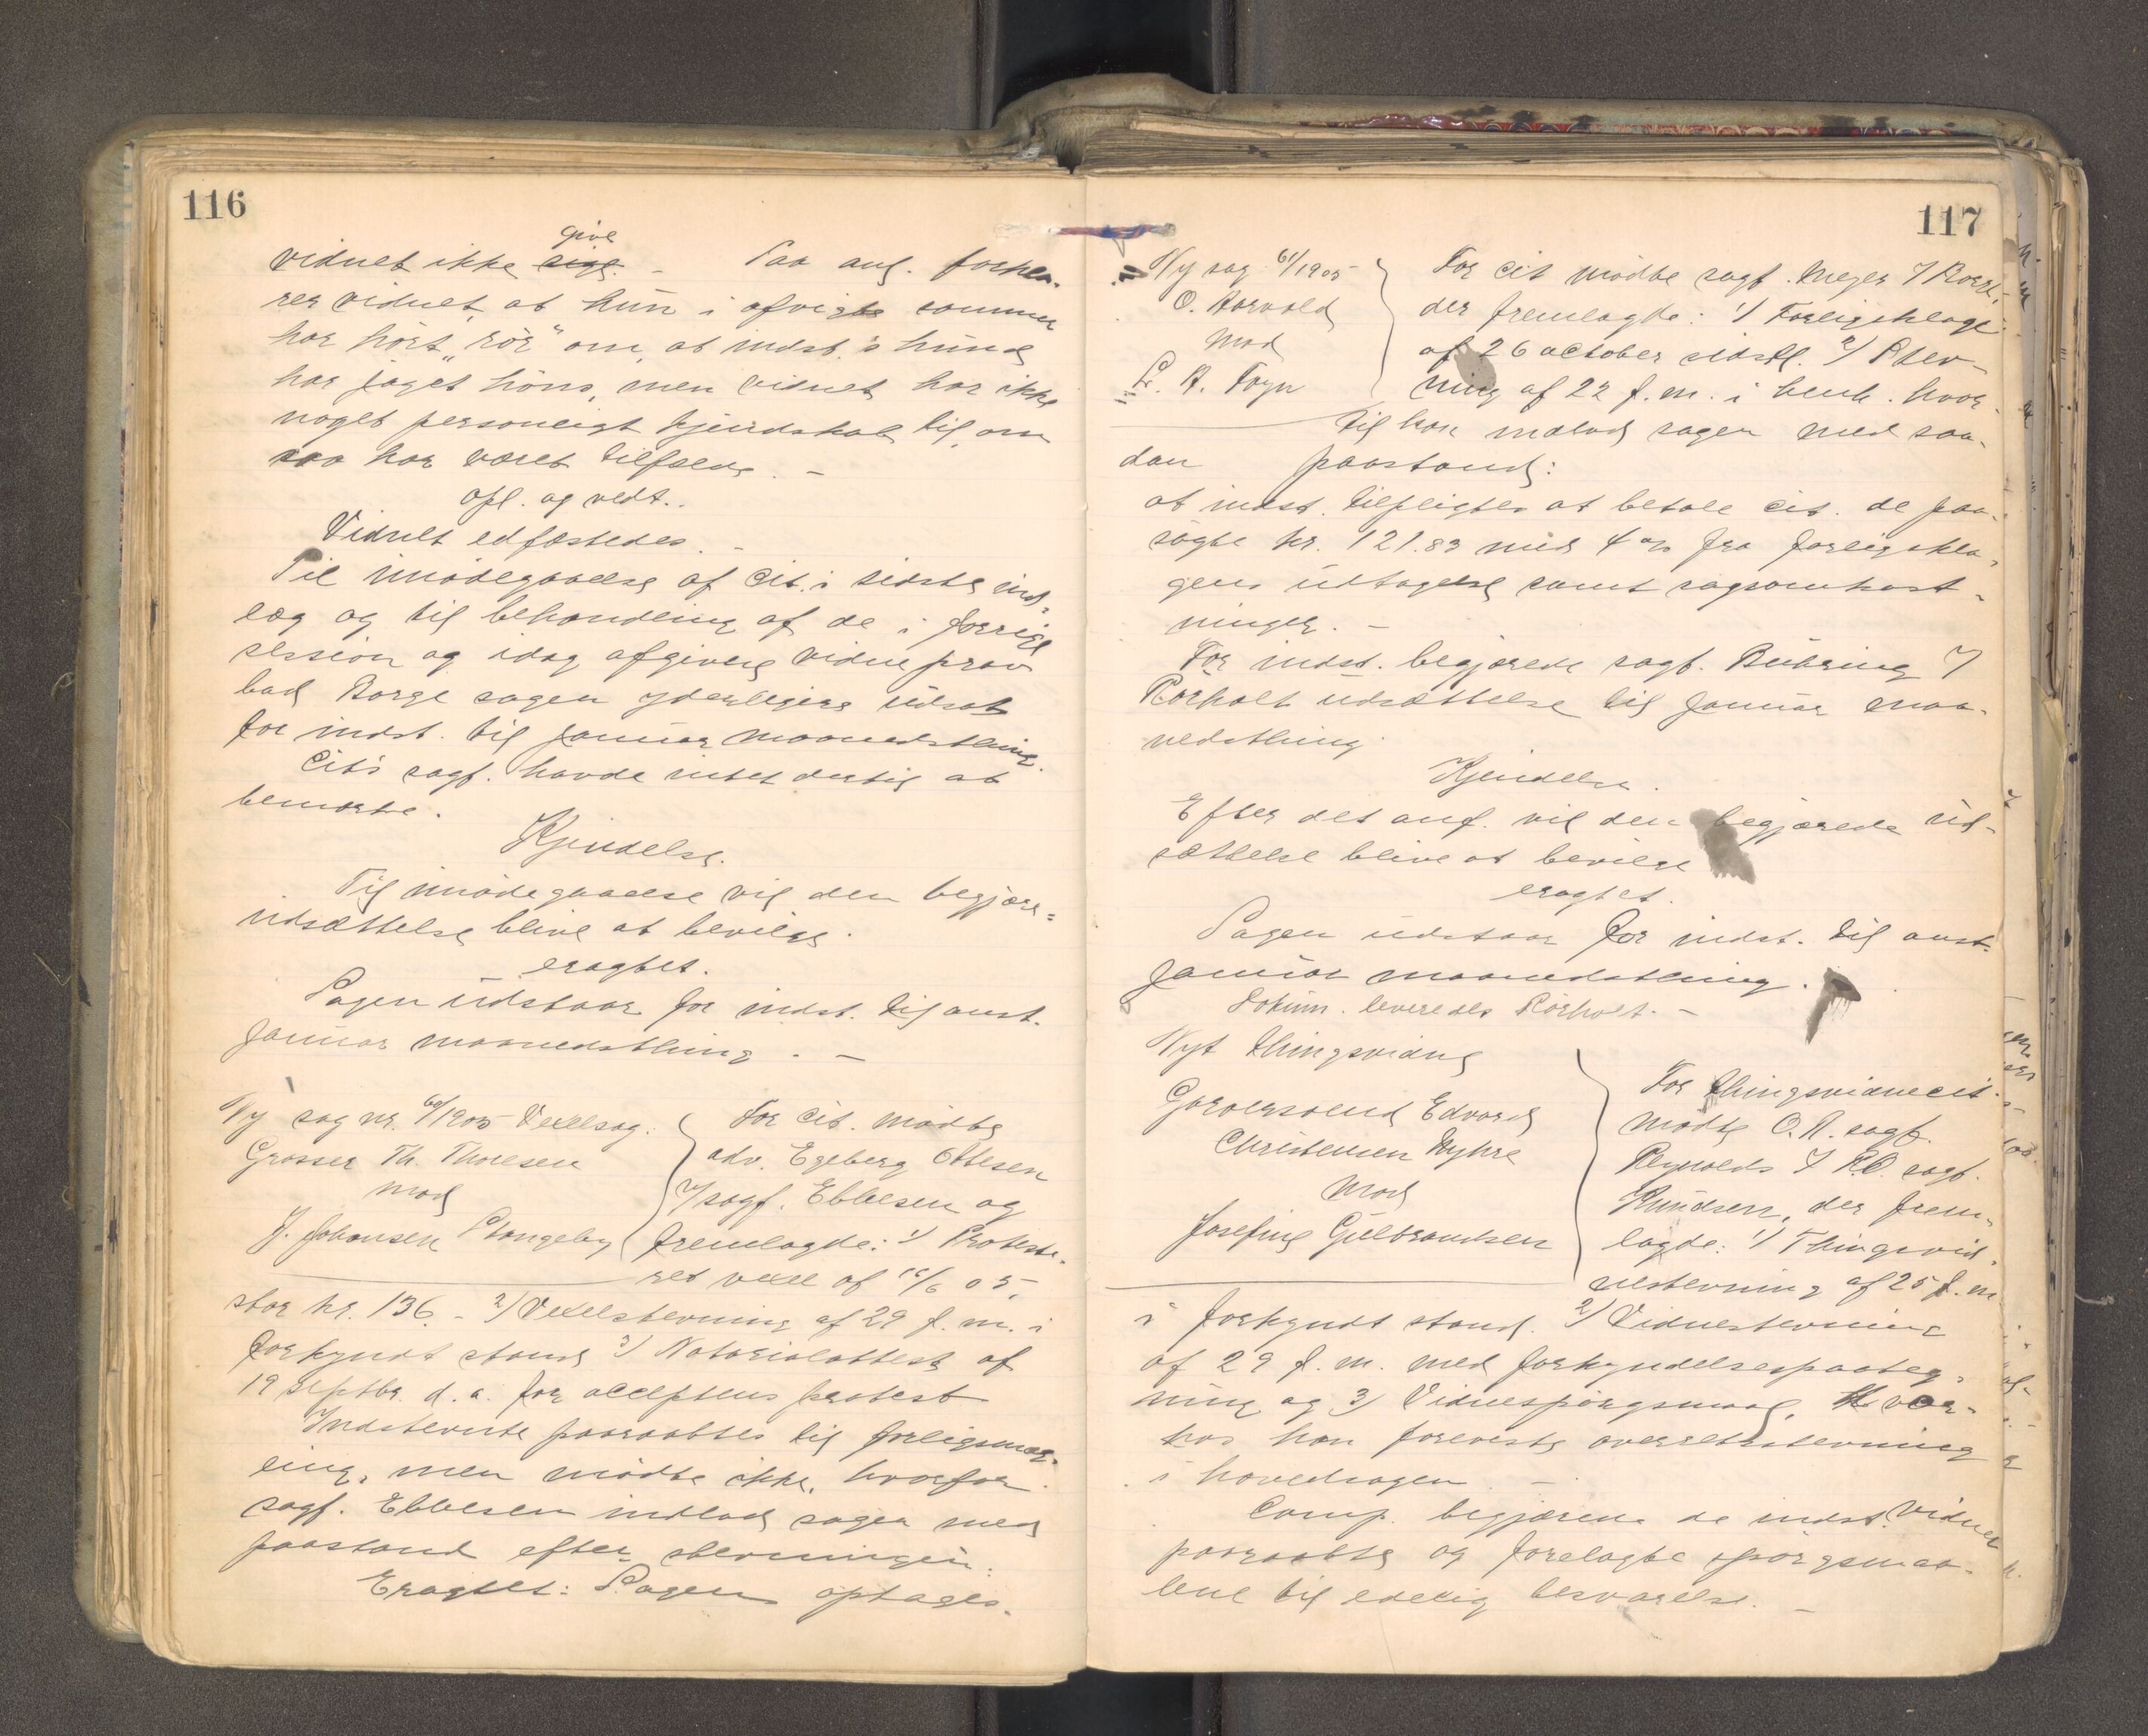 116
give
vidnet ikke sige. - Paa anl. forkla-
rer vidnet, at hun i afvigte sommer
har hört "rör" om, at indst.'s hund
har jaget höns, men vidnet har ikke
noget personligt kjendskab til, om
saa har været tilfælde. -
Opl. og vedt..
Vidnet edfæstedes. -
Til imödegaaelse af cit.s sidste ind-
læg og til behandling af de i forrige
session og idag afgivne vidneprov
bad Borge sagen yderligere udsat
for indst. til januar maanedsthing.
Cit's sagf. havde intet dertil at
bemærke.
Kjendelse.
Til imödegaaelse vil den begjærte
udsættelse blive at bevilge.
eragtet.
Sagen udstaar for indst. til anst.
januar maanedsthing. -
Ny sag nr. 60/1905 Vexelsag.
Grosser Th. Thoresen
mod
J. Johansen Stangeby
For cit. mödte
adv. Egeberg Ottesen
f/sagf. Ebbesen og
fremlagde: 1/ Proteste-
ret vexel af 16/6 05,
stor kr. 136. - 2/ Vexelstevning af 29 f. m. i
forkyndt stand 3/ Notarialattest af
19 septbr. d. a. for acceptens protest
Indstevnte paaraabtes til forligsmæg-
ling, men mödte ikke, hvorfor
sagf. Ebbesen indlod sagen med
paastand efter stevningen.
Eragtet: Sagen optages.
117
Ny sag 61/1905
O. Aarvold
mod
L. A. Foyn
For cit mödte sagf. Meyer f/ Borge,
der fremlagde: 1/ Forligsklage
af 26 october sidstl. 2/ Stev-
ning af 22 f. m. i behh. hvor-
til han indlod sagen med saa-
dan paastand:
at indst. tilpligtes at betale cit. de paa-
sögte kr. 121.83 med 4 % fra forligskla-
gens udtagelse samt sagsomkost-
ninger. -
For indst. begjærede sagf. Bühring f/
Rörholt udsættelse til januar maa-
nedsthing
Kjendelse.
Efter det anf. vil den begjærede ud-
sættelse blive at bevilge
eragtet.
Sagen udstaar for indst. til anst.
januar maanedsthing.
Dokum. leveredes Rörholt. -
Nyt thingsvidne
Garversvend Edvard
Christensen Myhre
mod
Josefine Gulbrandsen
For thingsvidnecit.
mödte O.R. sagf.
Reynolds f/ R.O. sagf.
Knudsen, der frem-
lagde: 1/ Thingsvid-
nestevning af 25 f. m.
i forkyndt stand. 2/ Vidnestevning
af 29 f. m. med forkyndelsespaateg-
ning og 3/ Vidnespörgsmaal. Hvor-
hos han foreviste overretsstevning
i hovedsagen -
Comp. begjærene de indst. vidner
paaraabte og forelagte spörgsmaa-
lene til edelig besvarelse. -